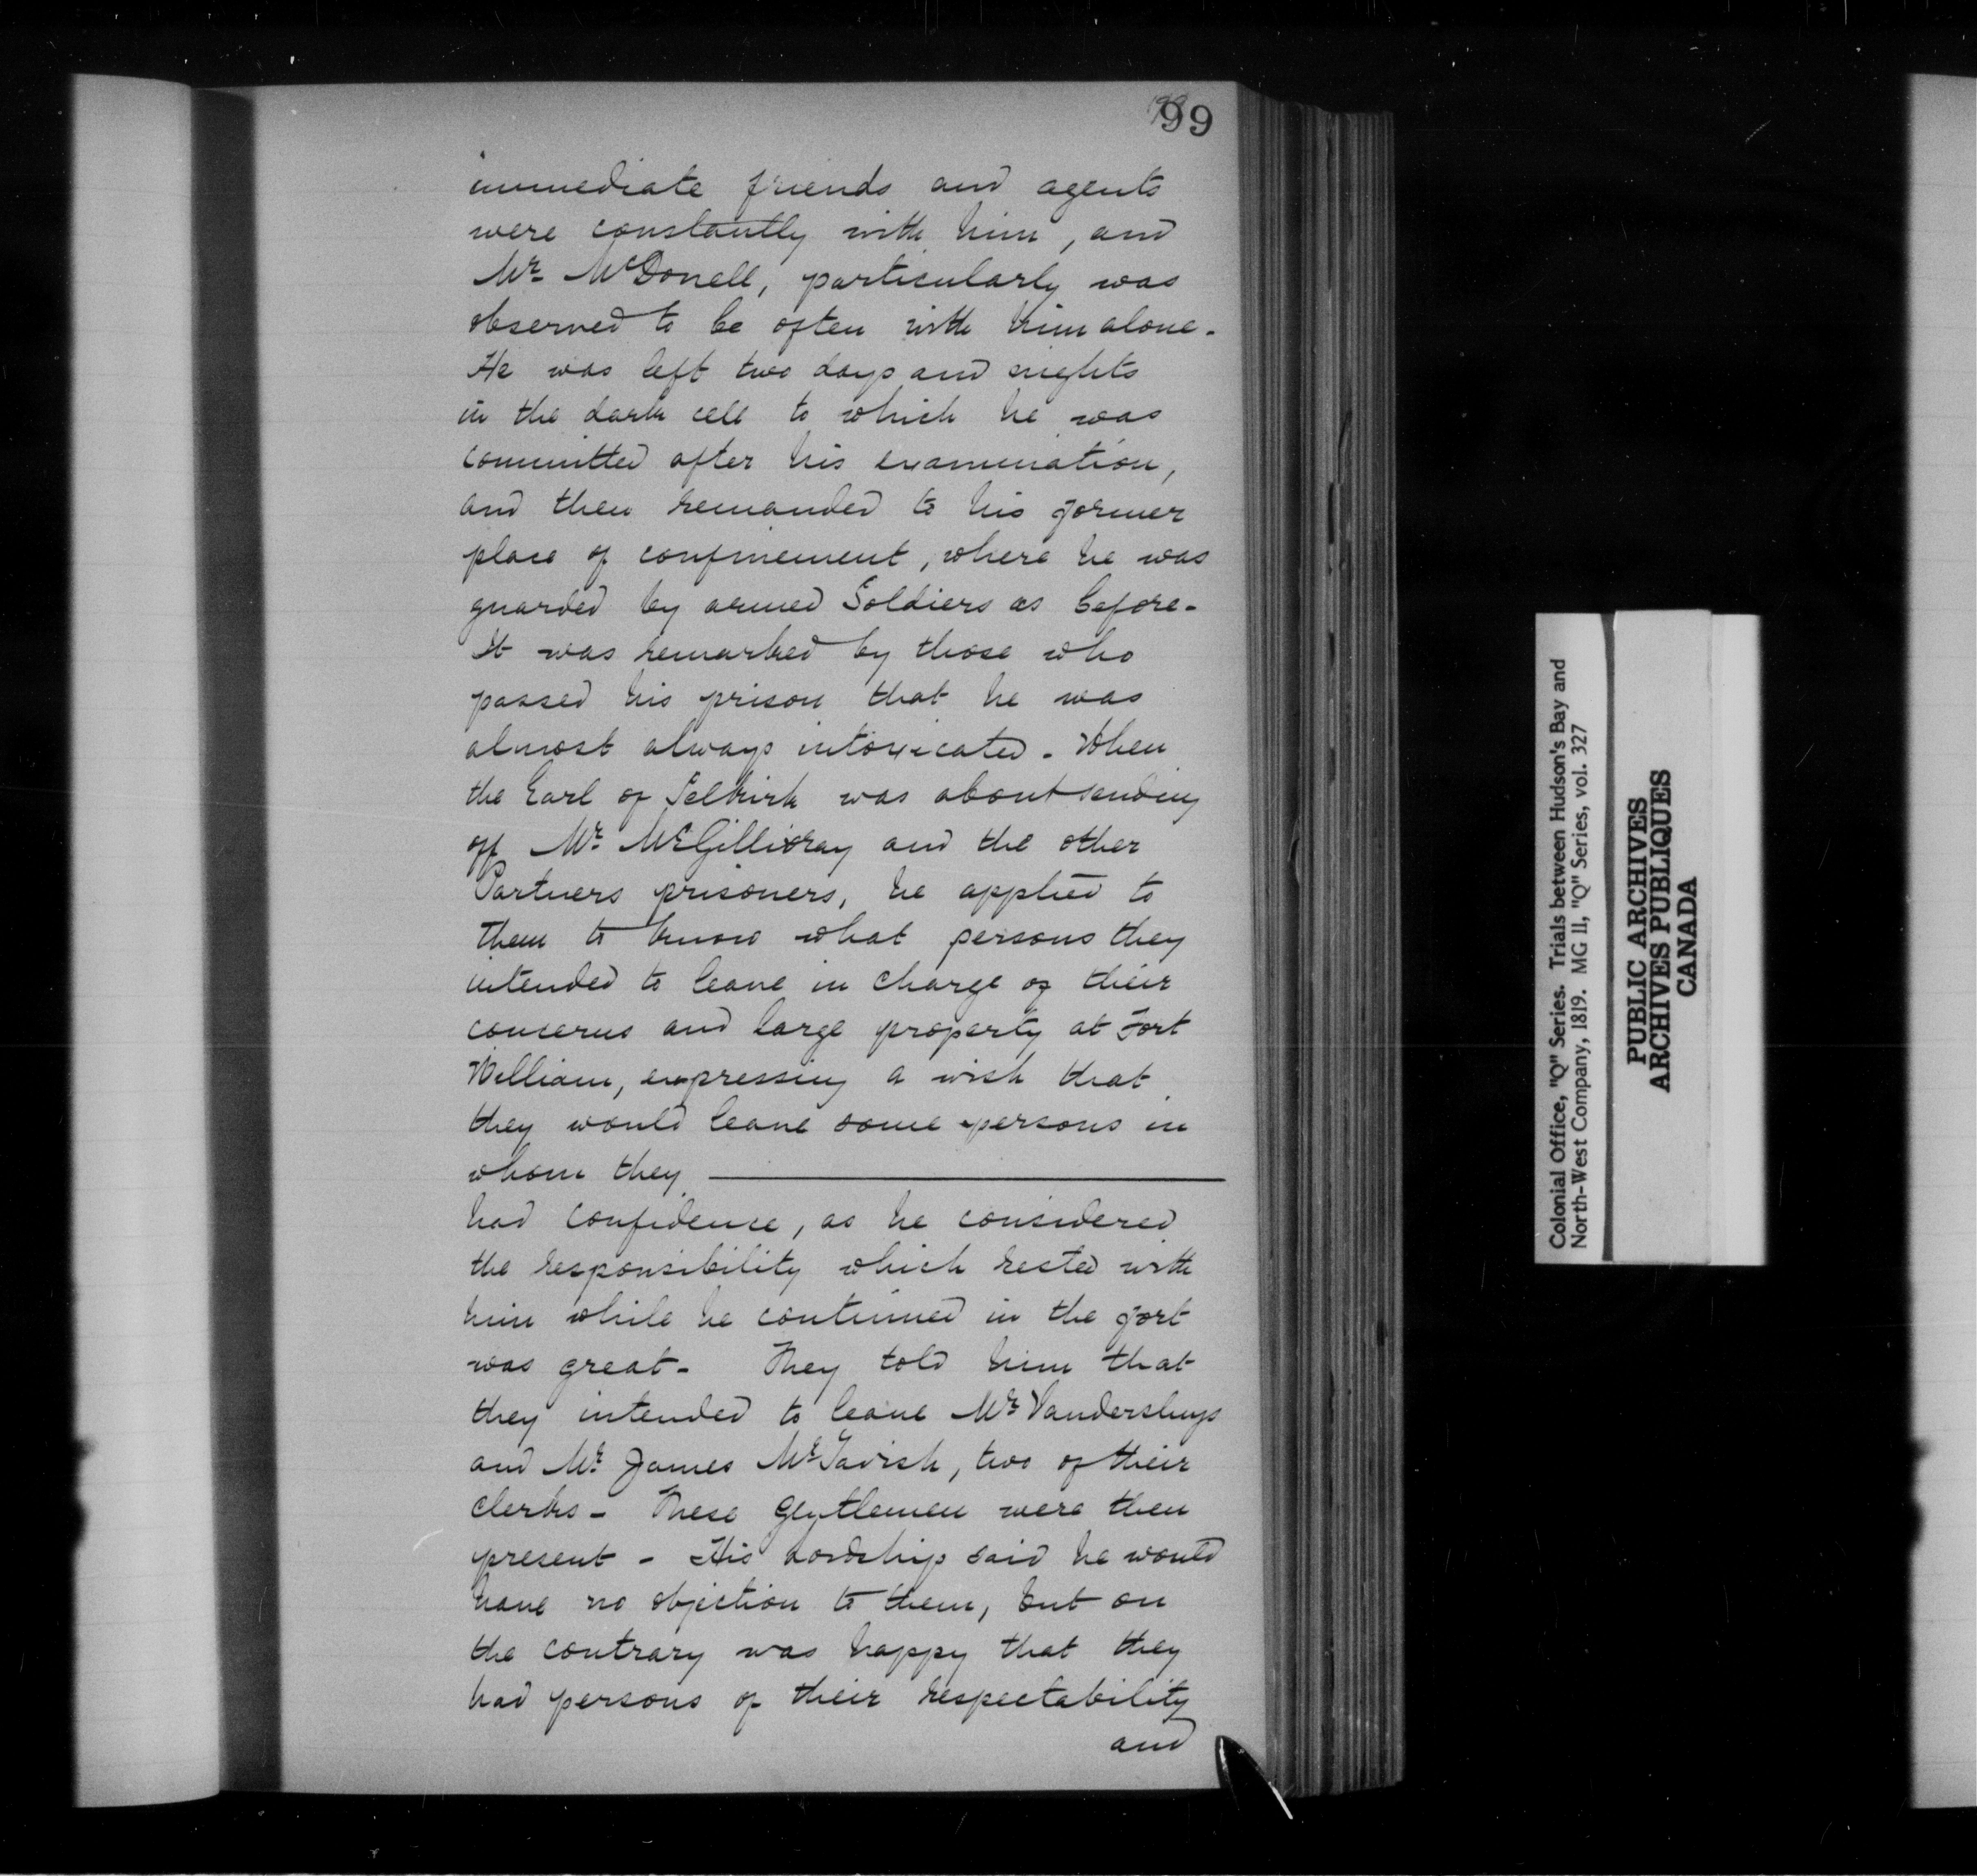 99
immediate friends and agents
were constantly with him, and
Mr. McDonell, particularly was
observed to be often with him alone.
He was left two days and nights
in the dark cell to which he was
committed after his examination,
and then remanded to his former
place of confinement, where he was
guarded by armed Soldiers as before -
It was remarked by those who
passed his prison that he was
almost always intoxicated. When
the Earl of Selkirk was about sending
off Mr. McGillivray and the other
Partners prisoners, he applied to
them to know what persons they
intended to leave in charge of their
concerns and large property at Fort
William, expressing a wish that
they would leave some persons in
whom they
had confidence, as he considered
the responsibility which rested with
him while he continued in the fort
was great - They told him that
they intended to leave Mr. Vandersluys
and Mr. James McTavish, two of their
clerks - These gentlemen were then
present - His Lordship said he would
have no objection to them, but on
the contrary was happy that they
had persons of their respectability
and
Colonial Office, "Q" Series. Trials between Hudson's Bay and
North-West Company, 1819. MG 11, "Q" Series, vol. 327
PUBLIC ARCHIVES
ARCHIVES PUBLIQUES
CANADA